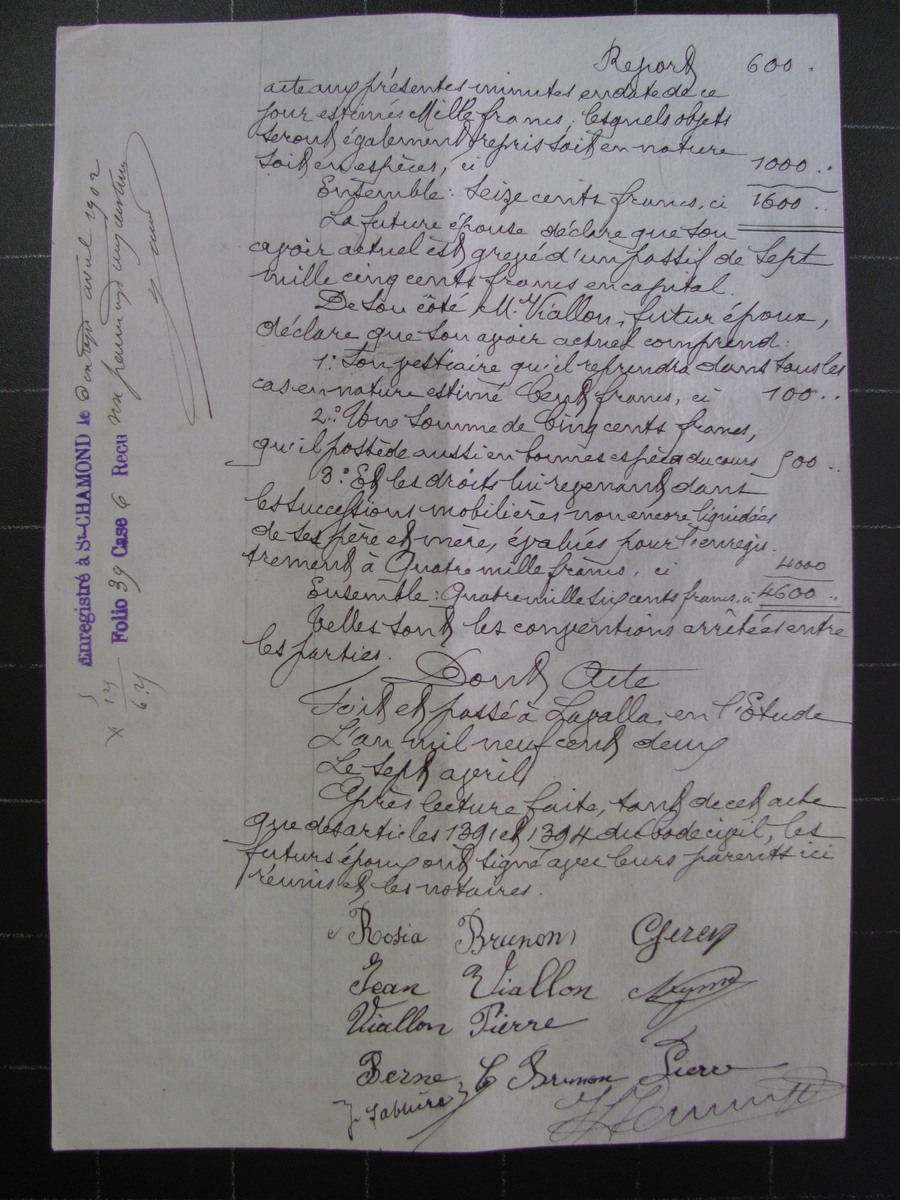 Report 600 .
acte aux présentes minutes en date de ce
jour estimés Mille francs, lesquels objets
seront également repris soit en nature
soit en espèces, ci 1000 ..
Ensemble : Seize cents francs, ci 1600 ..
La future épouse déclare que son
avoir actuel est grevé d'un passif de Sept
mille cinq cents francs en capital.
De son côté Mr Viallon, futur époux,
déclare que son avoir actuel comprend :
1º Son vestiaire qu'il reprendra dans tous les
cas en nature estimé Cent francs, ci 100 ..
2º Une somme de Cinq cents francs,
qu'il possède aussi en bonnes espèces du cours 500 ..
3º Et les droits lui revenant dans
les successions mobilières non encore liquidées
de ses père et mère, évalués pour l'enregis-
trement à Quatre mille francs, ci 4000
Ensemble : Quatre mille six cents francs, ci 4600 ..
Telles sont les conventions arrêtées entre
les parties. Dont Acte
Fait et passé à Lavalla, en l'Etude
L'an mil neuf cent deux
Le sept avril
Après lecture faite, tant de cet acte
que des articles 1391 et 1394 du Code civil, les
futurs époux ont signé avec leurs parents ici
réunis et les notaires.
Rosia Brunon
Jean Viallon
Viallon Pierre
Berne C Brunon Pierre
Enregistré à St-CHAMOND le avril 1902
Folio 39 Case 6 Reçu